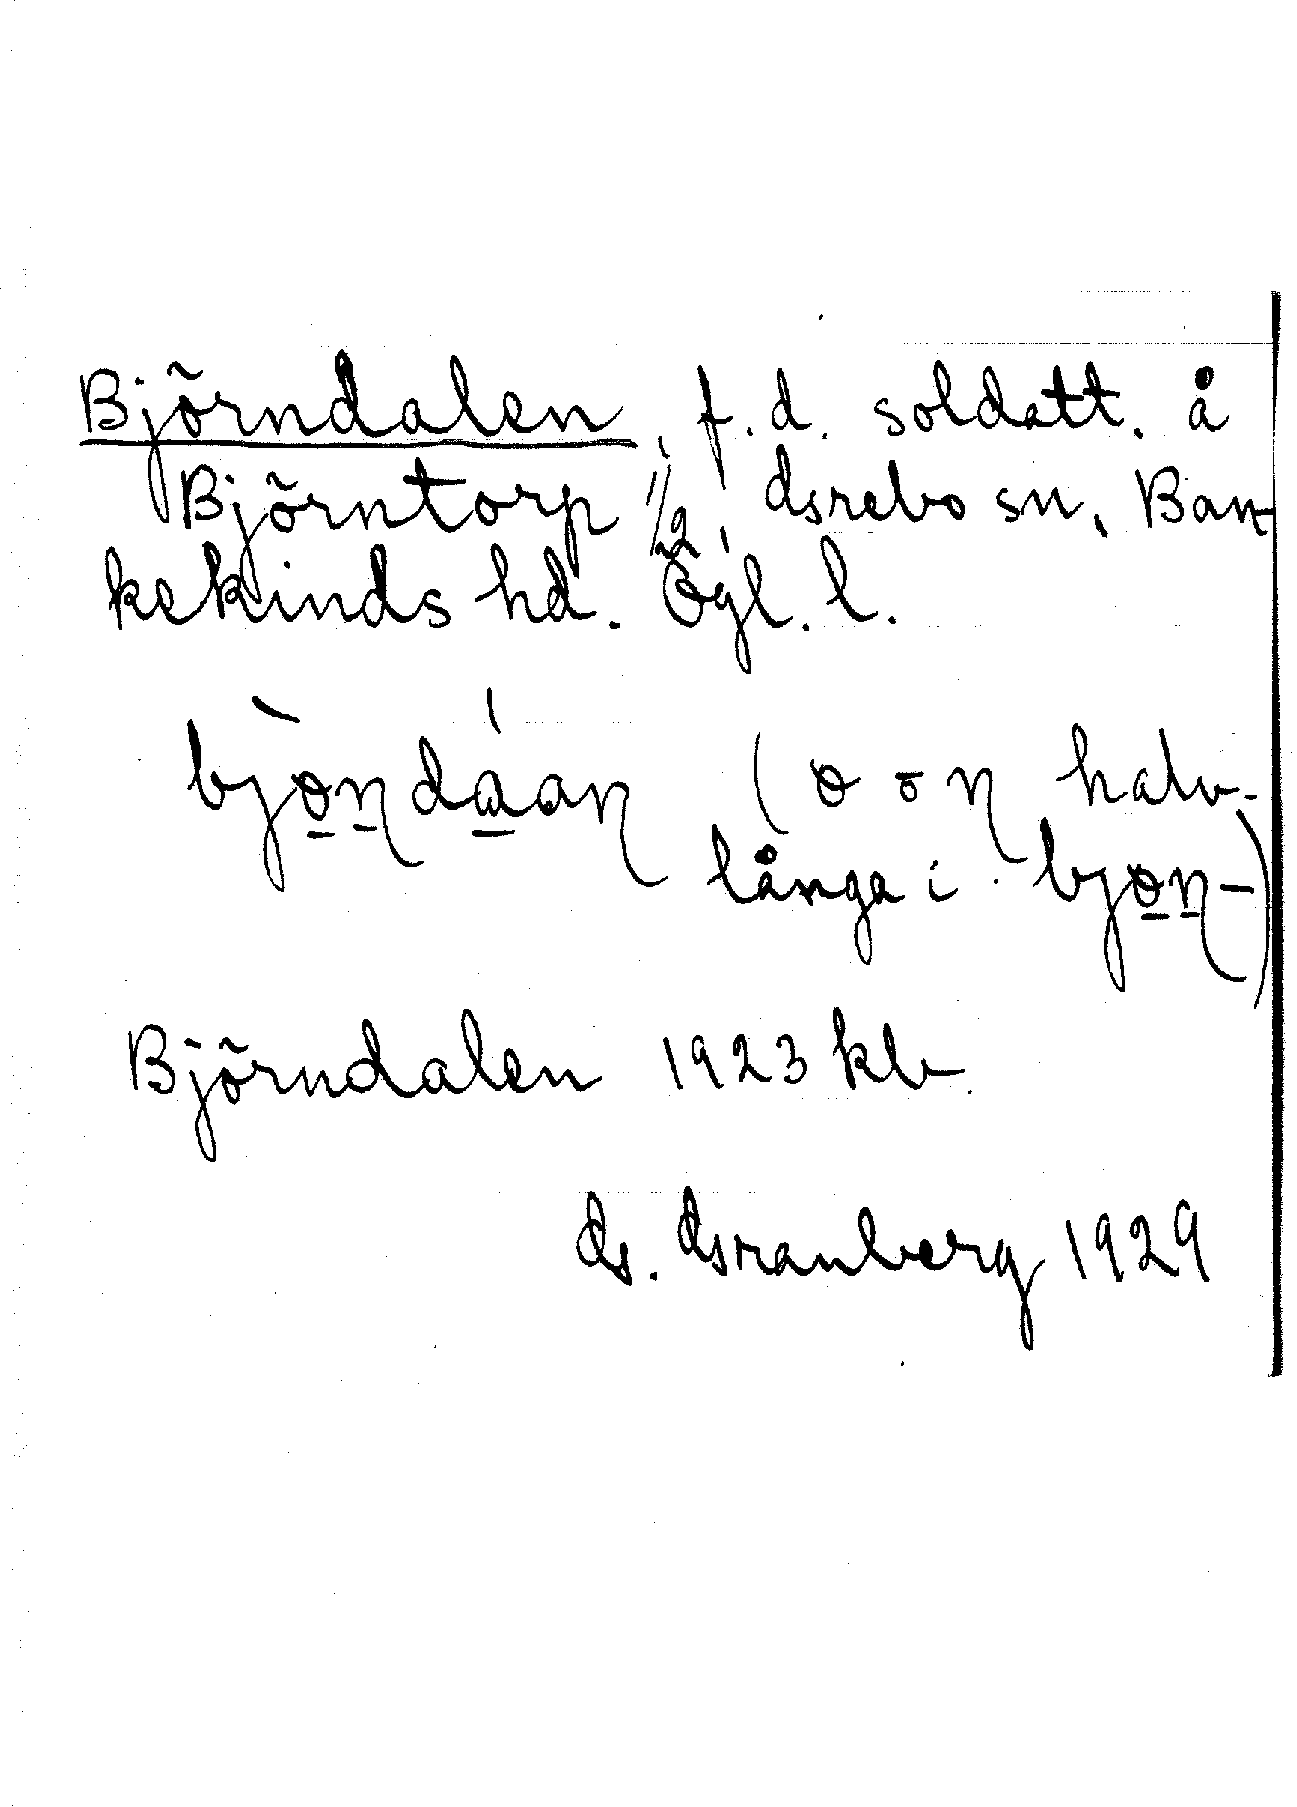 Björndalen, f. d. soldatt. å
Björntorp 1/2, Örebo sn, Ban-
kekinds hd. Ögl. l.
bjɵ̀ṇdáaṇ (ɵ o ṇ halv-
långa i bjɵṇ-)
Björndalen 1923 kb
1929